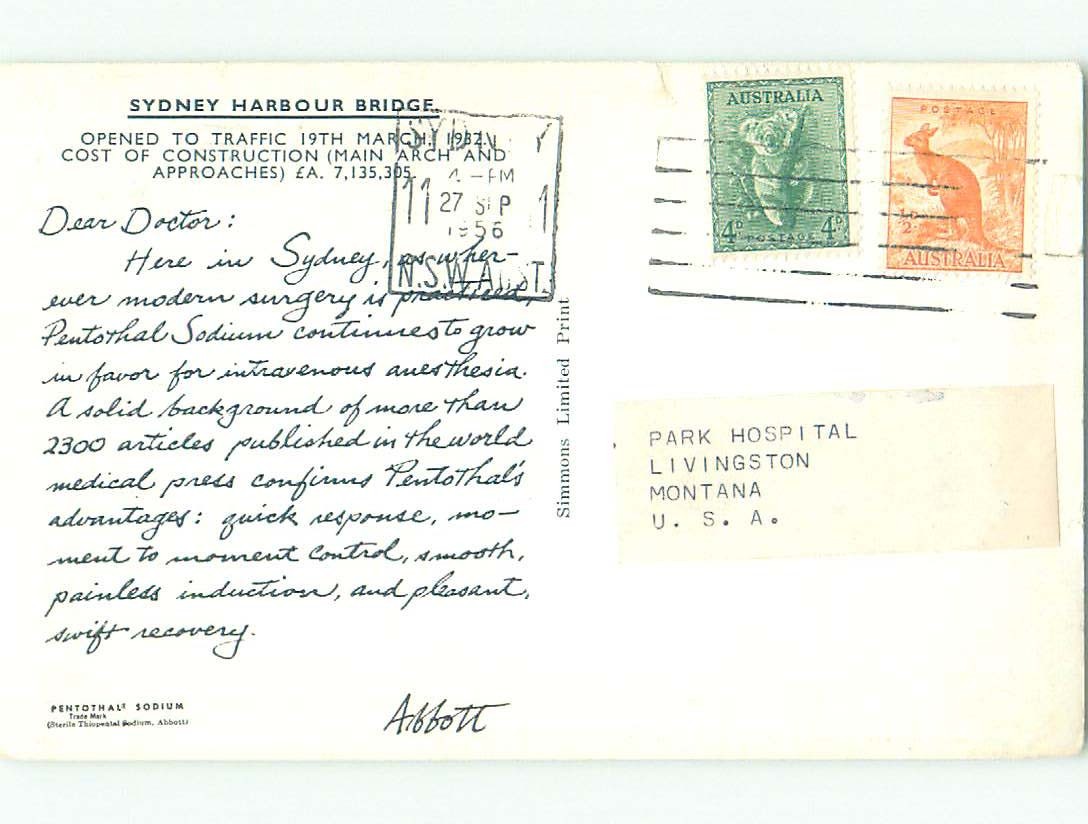 SYDNEY HARBOUR BRIDGE
OPENED TO TRAFFIC 19TH MARCH, 1932.
COST OF CONSTRUCTION (MAIN ARCH AND
APPROACHES) £A. 7,135,305.
Dear Doctor:
Here in Sydney, as wher-
ever modern surgery is practiced,
Pentothal Sodium continues to grow
in favor for intravenous anesthesia.
A solid background of more than
2300 articles published in the world
medical press confirms Pentothal's
advantages: quick response, mo-
ment to moment control, smooth,
painless induction, and pleasant,
swift recovery.
Abbott
PENTOTHAL® SODIUM
Trade Mark
(Sterile Thiopental Sodium, Abbott)
Simmons Limited Print
SYDNEY
11 - PM 1
27 SEP
1956
N.S.W. AUST.
AUSTRALIA
4D POSTAGE 4D
POSTAGE
AUSTRALIA
PARK HOSPITAL
LIVINGSTON
MONTANA
U. S. A.